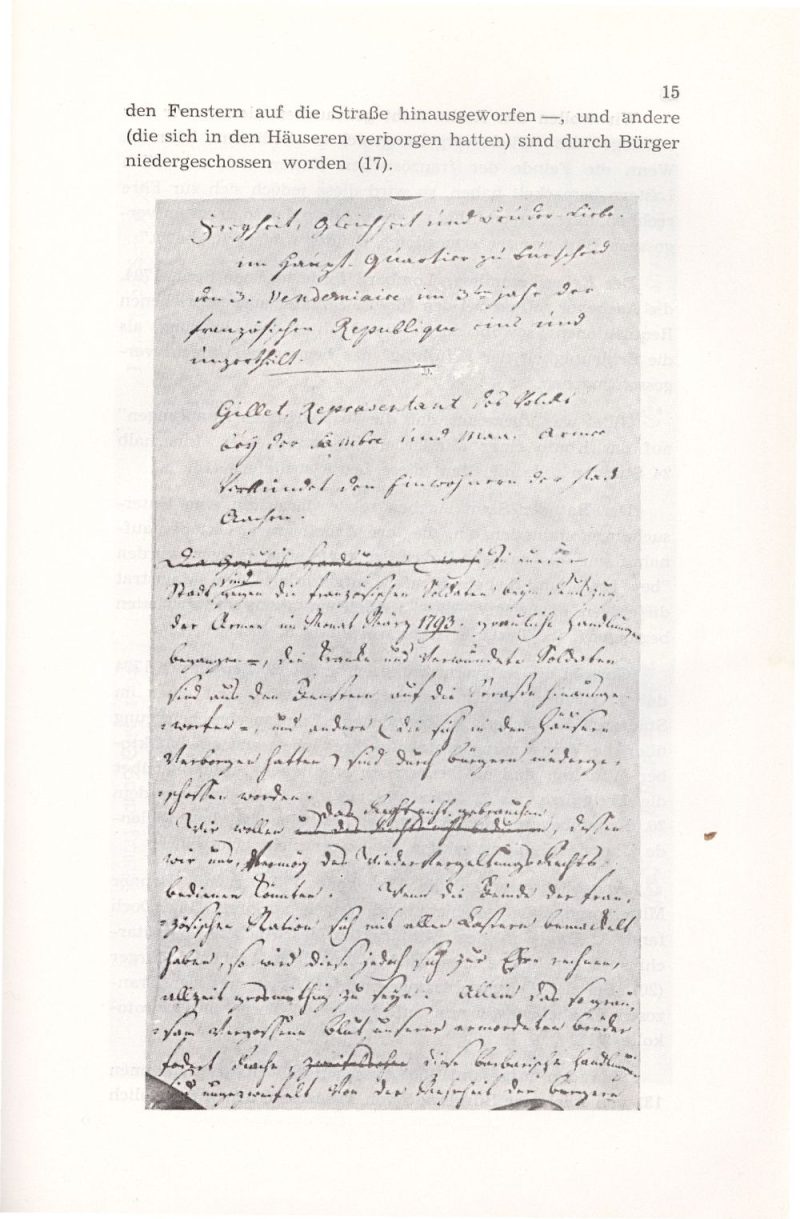 15
den Fenstern auf die Straße hinausgeworfen —, und andere
(die sich in den Häuseren verborgen hatten) sind durch Bürger
niedergeschossen worden (17).
Freyheit, Gleichheit und Bruder-Liebe.
im Haupt-Quartier zu Burscheid
den 3. Vendemiaire im 3ten Jahr der
französischen Republique eins und
unzertheilt.
Gillet, Repräsentant des Volcks
bey der Sambre und Maas Armee
Verkündet den Einwohnern der Stadt
Aachen.
In eurer
Stadt sind gegen die französischen Soldaten beym
der Armee im Monat März 1793. grauliche Handlungen
begangen =, die Kranke und Verwundete Soldaten
sind aus den Fenstern auf die Strasse hinausge-
=worfen =, und andere (die sich in den Häusern
Verborgen hatten) sind durch bürgern niederge-
=schossen worden.
das Recht nicht gebrauchen
Wir wollen, dessen
wir uns, Vermög des WiederVergeltungs Rechts
bedienen könnten. Wenn die Feinde der fran-
=zösischen Nation sich mit allen Lastern bemackelt
haben, so wird diese jedoch sich zur Ehre rechnen,
allzeit grosmüthig zu seyn. Allein das so grau-
=sam Vergossene Blut unserer ermordeten brüder
fodert Rache, diese barbarische Handlung
sind ungezweifelt Von der Mehrheit der bürgern